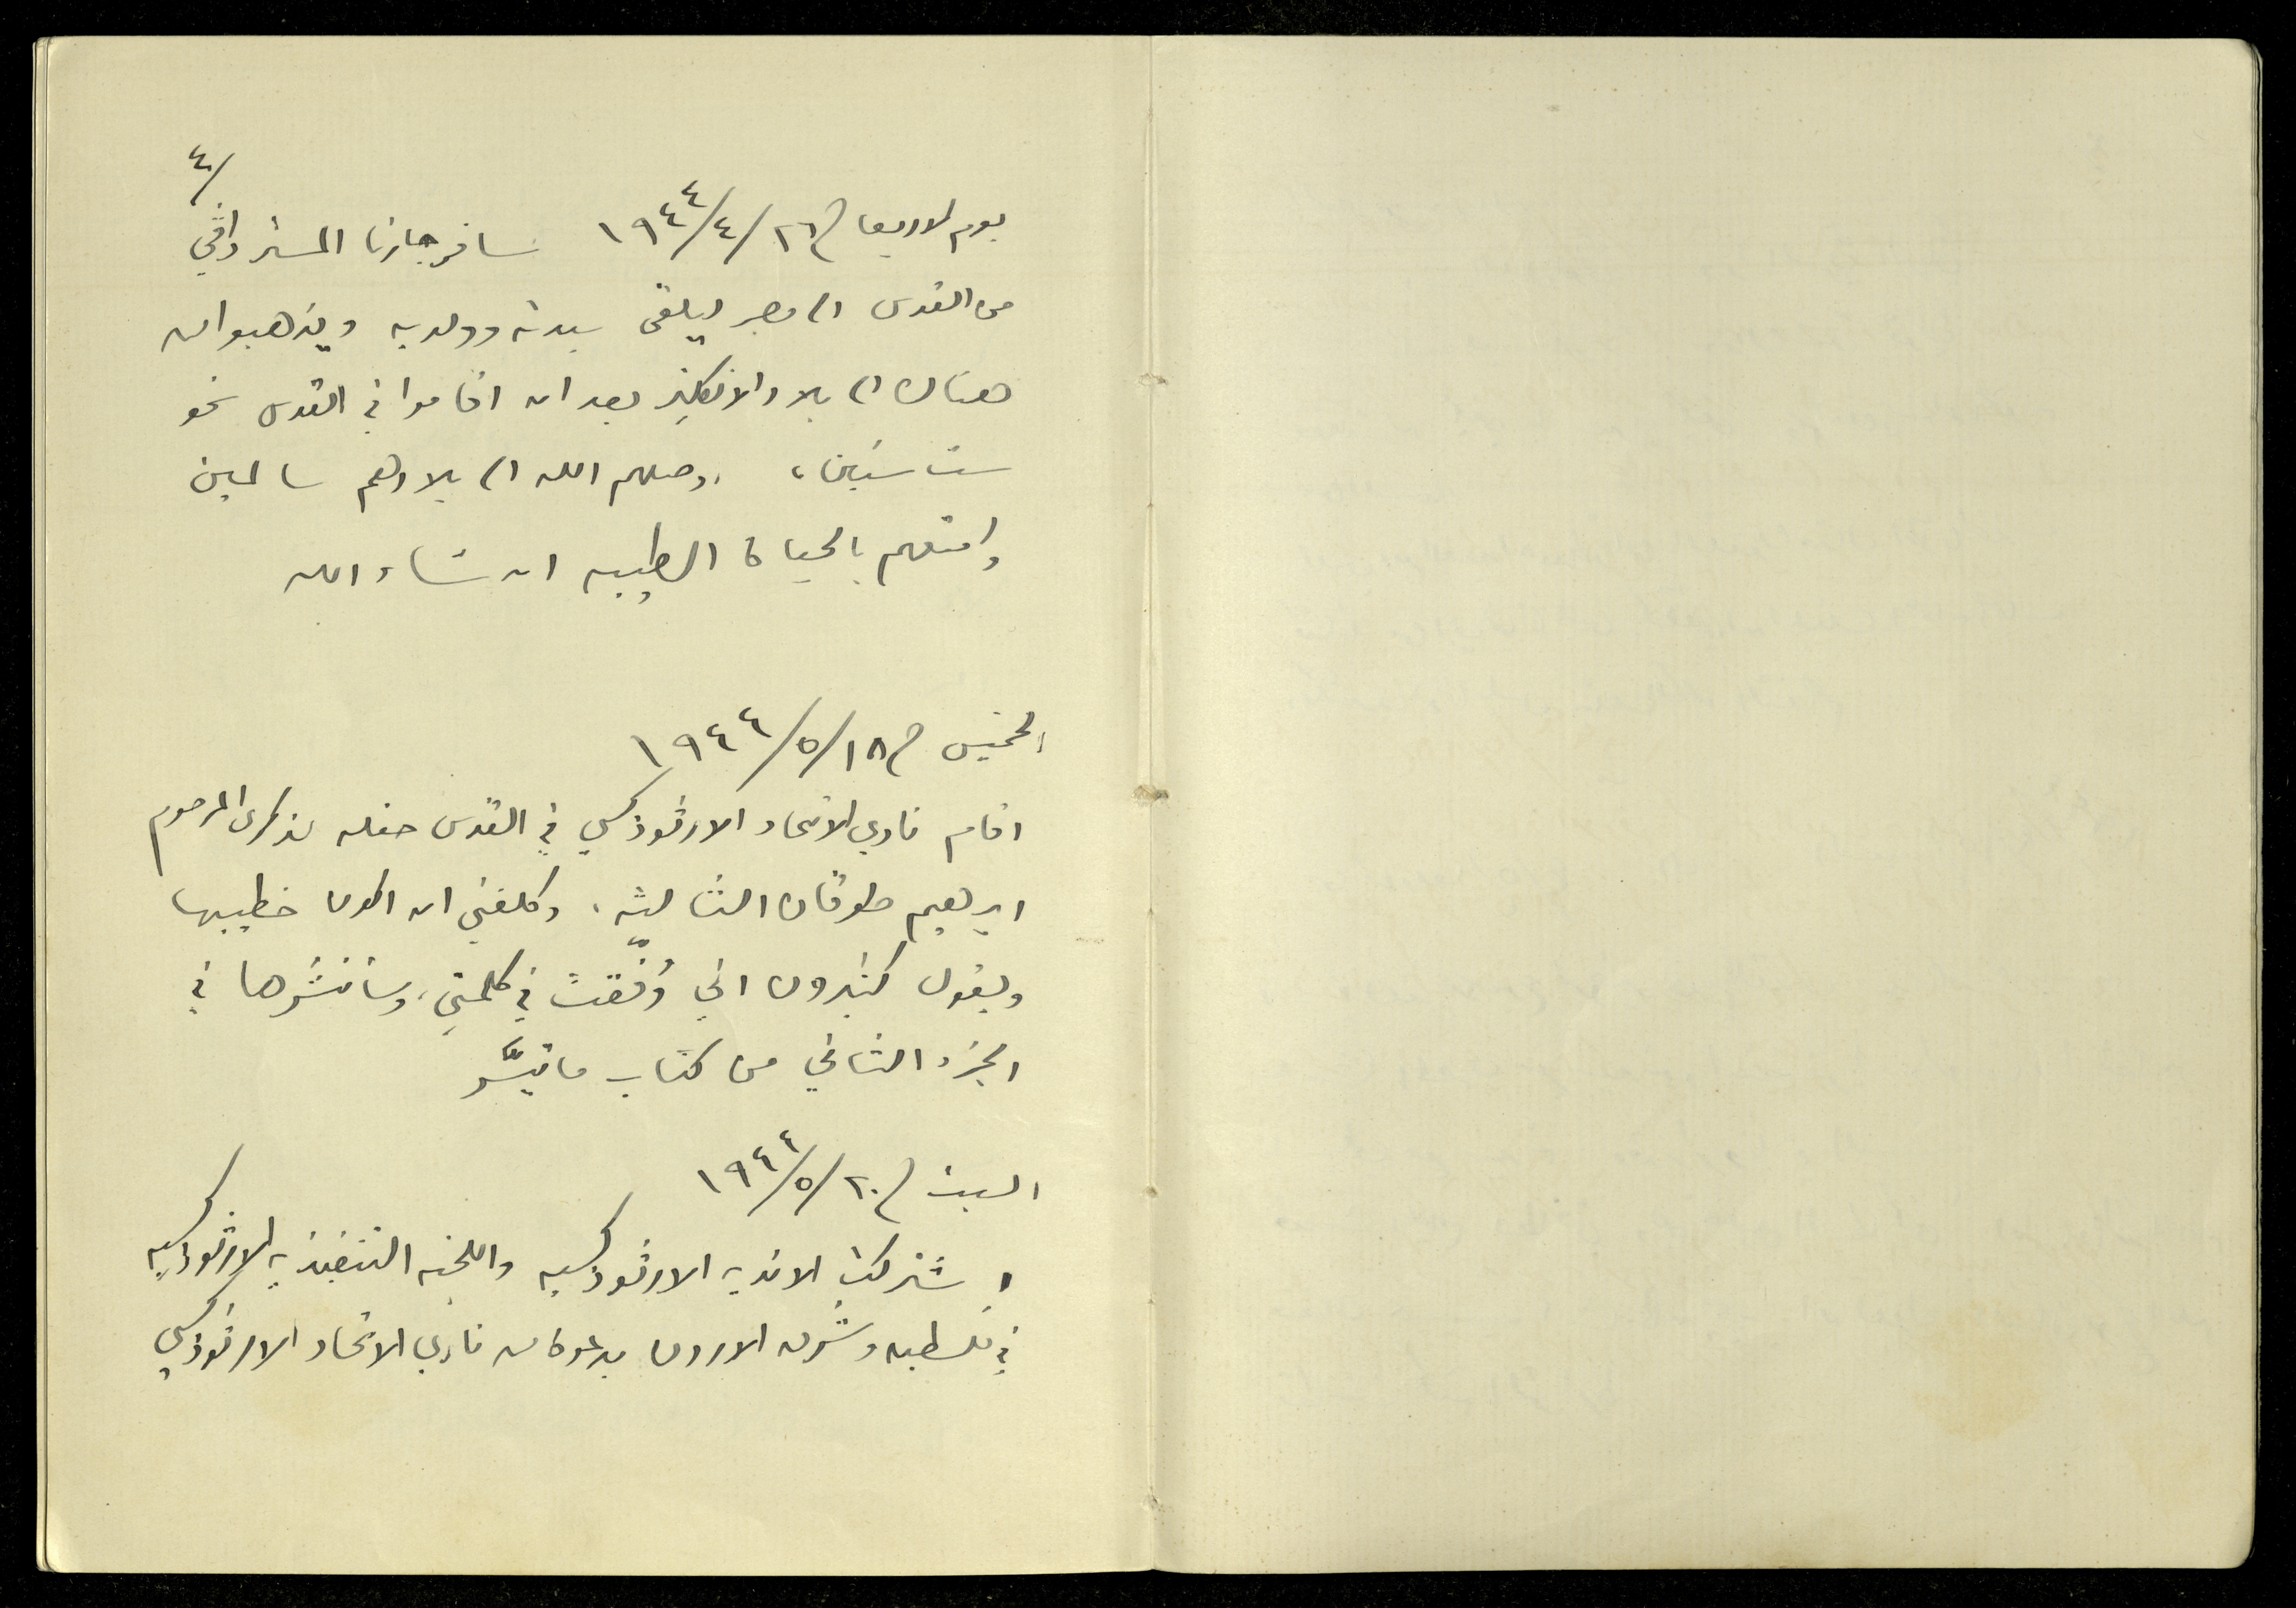 ٤/
يوم الاربعا في ٢٦/٤/١٩٤٤ سافر جارنا المستر
من القدس الى مصر ليلقى سيدته وولديه ويذهبوا من
هناك الى بلاد الانكليز بعد ان اقاموا في القدس نحو
ست سنين، اوصلهم الله الى بلادهم سالمين
وامتعهم بالحياة الطيبه ان شاء الله
الخميس في ١٨/٥/١٩٤٤
اقام نادي الاتحاد الارثوذكسي في القدس حفله لذكرى المرحوم
ابرهيم طوقان الثالثه، وكلفني ان اكون خطيبها
ويقول كثيرون اني وُفّقت في كلمتي، وسأنشرها في
الجزء الثاني من كتاب ما تيسَّر
السبت في ٢٠/٥/١٩٤٤
اشتركت الانديه الارثوذكسيه واللجنه التنفيذيه الارثوذكسيه
في فلسطين وشرق الاردن بدعوة من نادي الاتحاد الارثوذكسي